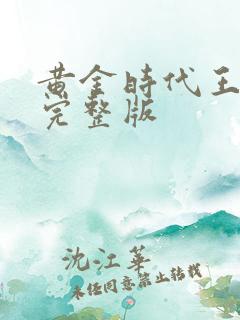 黄金時代王
完整版
沈江華
未经同意禁止转载